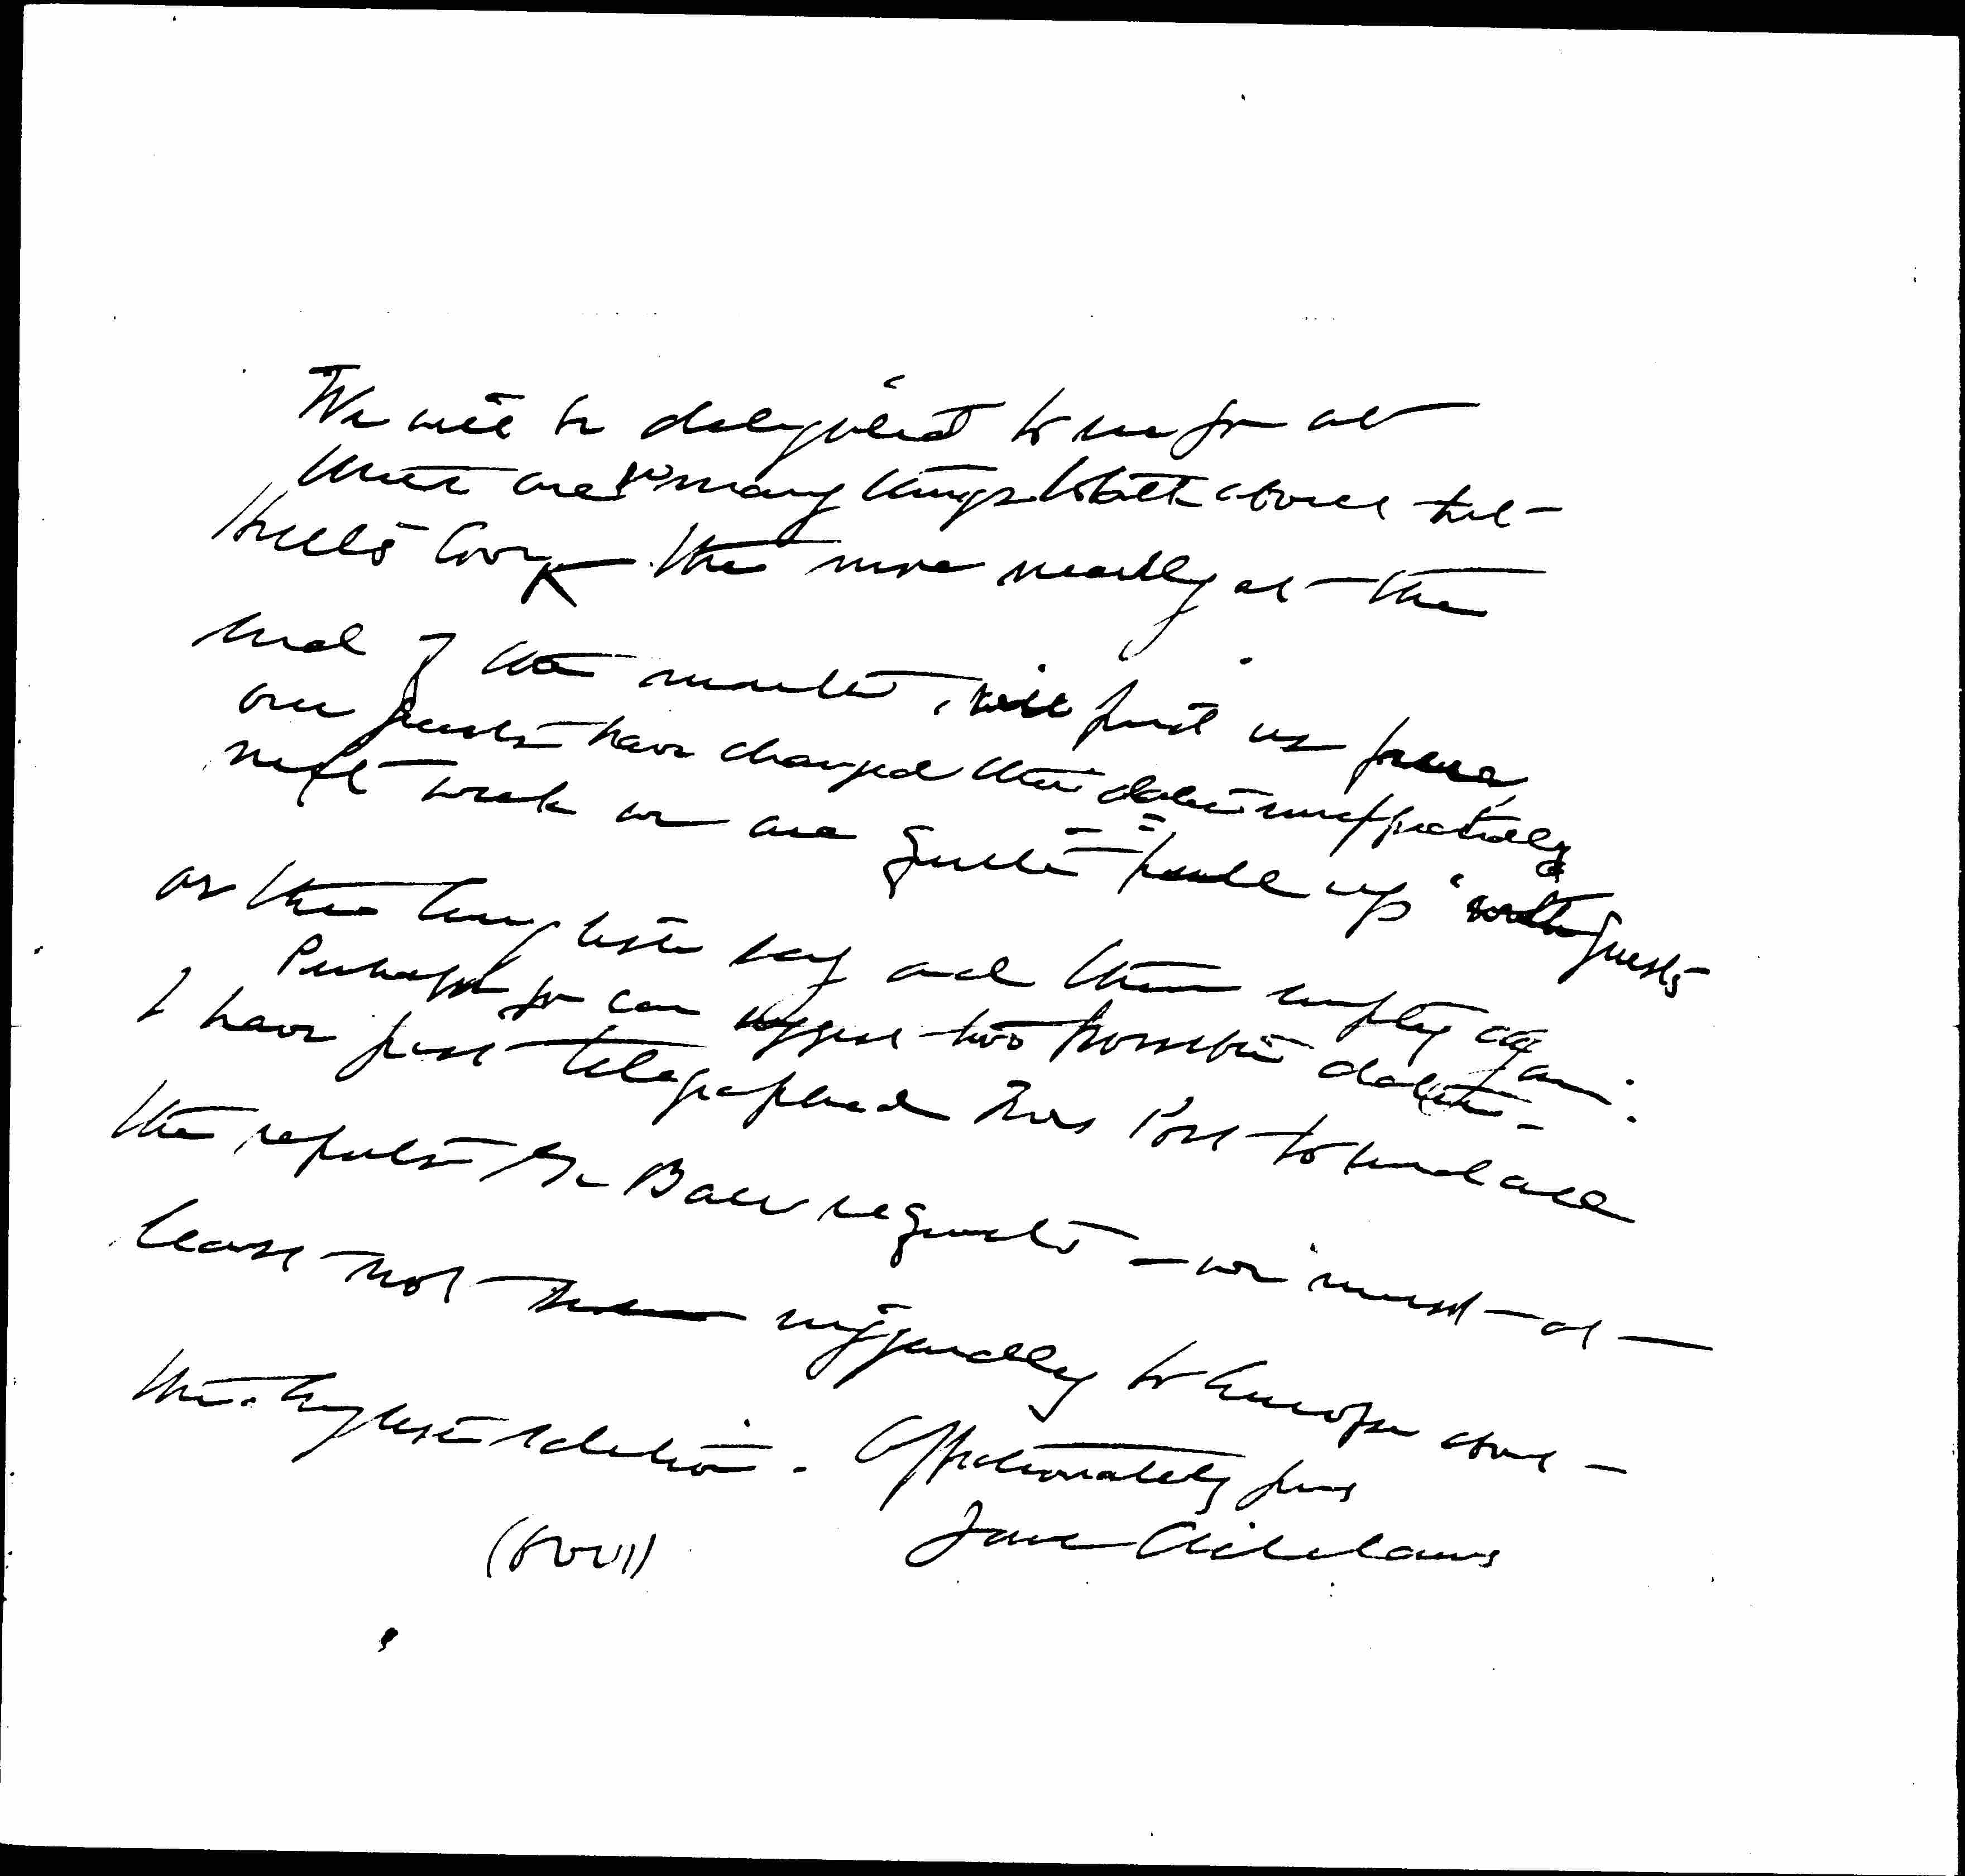 We will be delighted to see you at
there are so many things to talk about
The more nearly at the
end of the month, will find us free
our guests have changed their dates
next week we are quite filled up with guests
as they and then empty again:
Perhaps you can suggest two possible dates
I have just telegraphed Mrs Post to send all
the reports Dr Balch requests - we must at
least not seem niggardly to Europe
the. Affectionately yours
(over) Jane Addams